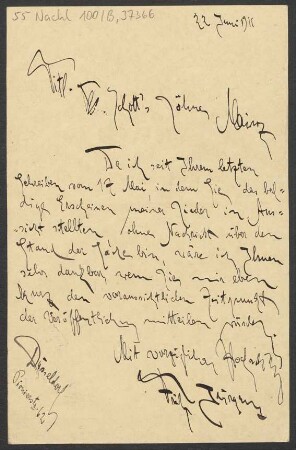 55 Nachl 100/B, 37366
22 Juni 1911
Titl.
B. Schott's Söhne Mainz
Da ich seit Ihrem letzten
Schreiben vom 12 Mai, in dem Sie das bal-
dige Erscheinen meiner Lieder in Aus-
sicht stellten, ohne Nachricht über den
Stand der Sache bin, wäre ich Ihnen
sehr dankbar, wenn Sie mir eben
kurz den voraussichtlichen Zeitpunkt
der Veröffentlichung mitteilen würden.
Mit vorzüglicher Hochachtg
Fritz Jürgens
Düsseldorf